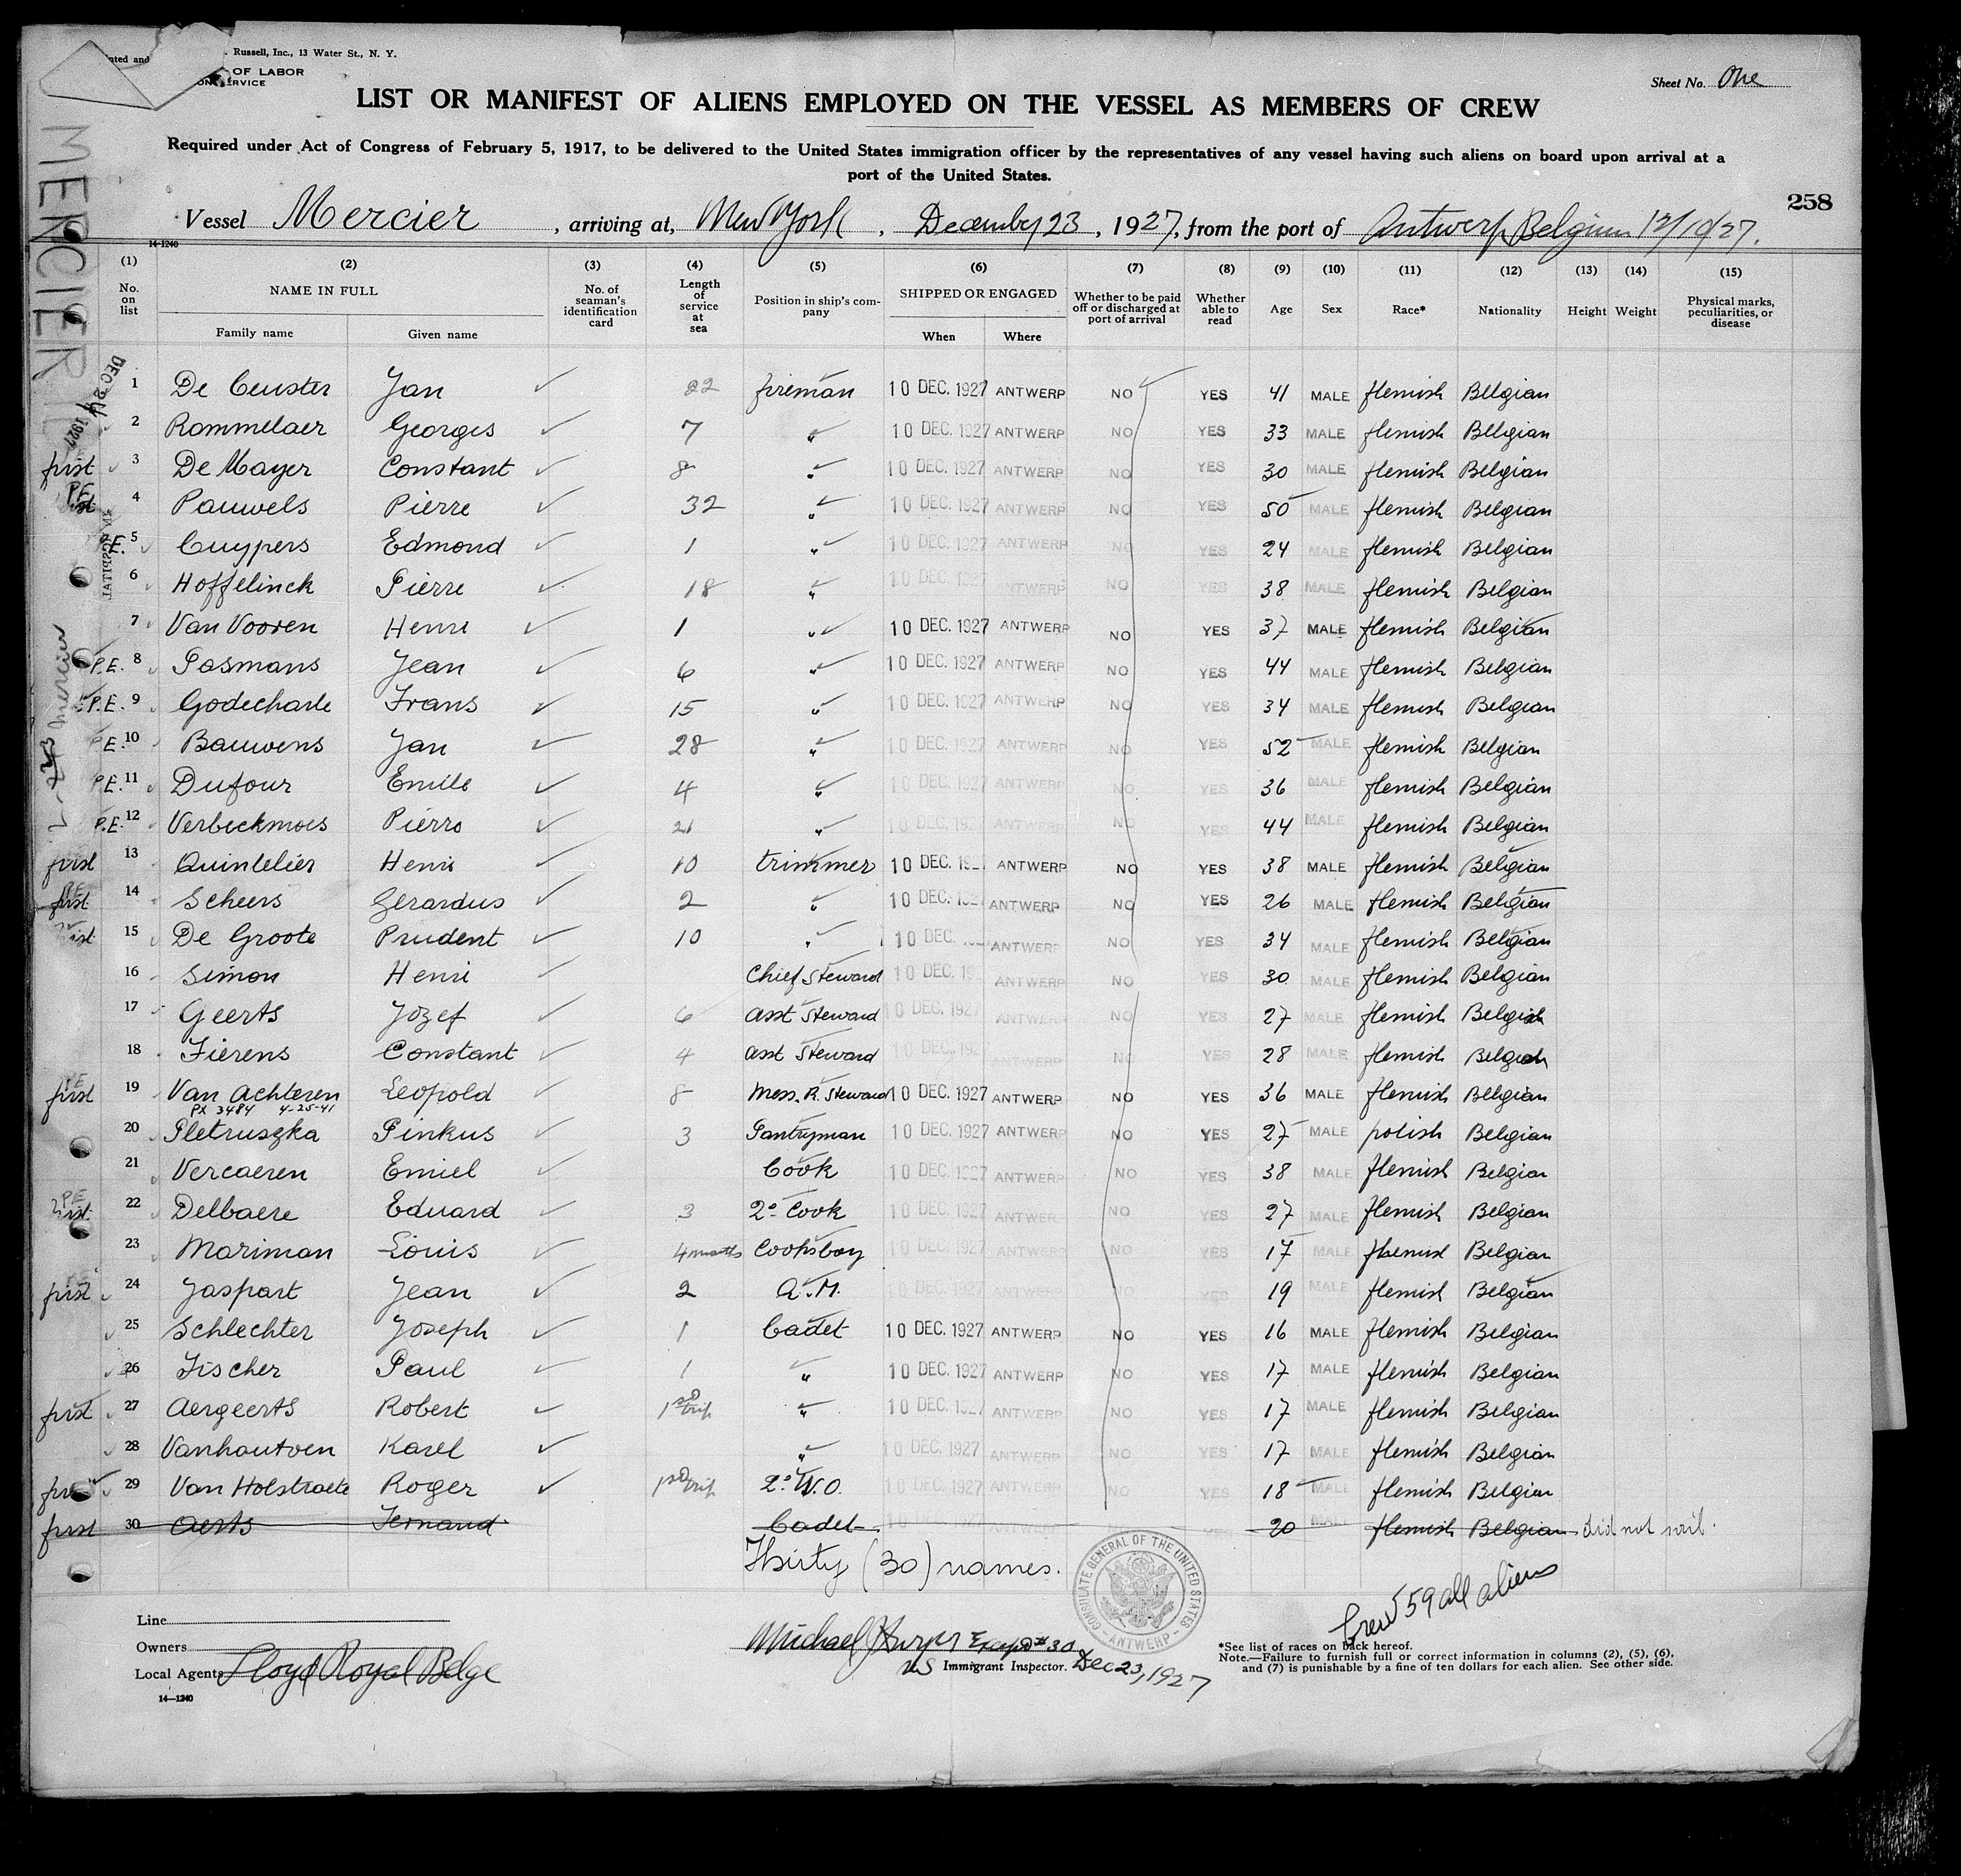 Russell, Inc., 13 Water St., N. Y.
OF LABOR
SERVICE
Sheet No. One
LIST OR MANIFEST OF ALIENS EMPLOYED ON THE VESSEL AS MEMBERS OF CREW
Required under Act of Congress of February 5, 1917, to be delivered to the United States immigration officer by the representatives of any vessel having such aliens on board upon arrival at a
port of the United States.
258
Vessel Mercier, arriving at, New York, December 23, 1927, from the port of Antwerp Belgium 12/10/27.
14-1240
MERCIER
DEC 24 1927
IN HOSPITAL
Mercier
(1) (2) (3) (4) (5) (6) (7) (8) (9) (10) (11) (12) (13) (14) (15)
No. on list NAME IN FULL Family name Given name No. of seaman's identification card Length of service at sea Position in ship's company SHIPPED OR ENGAGED When Where Whether to be paid off or discharged at port of arrival Whether able to read Age Sex Race* Nationality Height Weight Physical marks, peculiarities, or disease
1 De Ceuster Jan 22 fireman 10 DEC. 1927 ANTWERP NO YES 41 MALE flemish Belgian
2 Rommelaer Georges 7 " 10 DEC. 1927 ANTWERP NO YES 33 MALE flemish Belgian
first 3 De Mayer Constant 8 " 10 DEC. 1927 ANTWERP NO YES 30 MALE flemish Belgian
P.E. first 4 Pauwels Pierre 32 " 10 DEC. 1927 ANTWERP NO YES 50 MALE flemish Belgian
P.E. 5 Cuypers Edmond 1 " 10 DEC. 1927 ANTWERP NO YES 24 MALE flemish Belgian
6 Hoffelinck Pierre 18 " 10 DEC. 1927 ANTWERP NO YES 38 MALE flemish Belgian
7 Van Vooren Henri 1 " 10 DEC. 1927 ANTWERP NO YES 37 MALE flemish Belgian
P.E. 8 Posmans Jean 6 " 10 DEC. 1927 ANTWERP NO YES 44 MALE flemish Belgian
P.E. 9 Godecharle Frans 15 " 10 DEC. 1927 ANTWERP NO YES 34 MALE flemish Belgian
P.E. 10 Bauwens Jan 28 " 10 DEC. 1927 ANTWERP NO YES 52 MALE flemish Belgian
P.E. 11 Dufour Emile 4 " 10 DEC. 1927 ANTWERP NO YES 36 MALE flemish Belgian
P.E. 12 Verbeckmoes Pierro 21 " 10 DEC. 1927 ANTWERP NO YES 44 MALE flemish Belgian
first 13 Quintelier Henri 10 trimmer 10 DEC. 1927 ANTWERP NO YES 38 MALE flemish Belgian
P.E. first 14 Scheers Gerardus 2 " 10 DEC. 1927 ANTWERP NO YES 26 MALE flemish Belgian
first 15 De Groote Prudent 10 " 10 DEC. ANTWERP NO YES 34 MALE flemish Belgian
16 Simon Henri Chief Steward 10 DEC. 19 ANTWERP NO YES 30 MALE flemish Belgian
17 Geerts Jozef 6 asst Steward 10 DEC. 1927 ANTWERP NO YES 27 MALE flemish Belgian
18 Fierens Constant 4 asst Steward 10 DEC. 192 ANTWERP NO YES 28 MALE flemish Belgian
P.E. first 19 Van Achteren Leopold 8 Mess. R. Steward 10 DEC. 1927 ANTWERP NO YES 36 MALE flemish Belgian
PX 3484 4-25-41
20 Pletruszka Pinkus 3 Pantryman 10 DEC. 1927 ANTWERP NO YES 27 MALE polish Belgian
21 Vercaeren Emiel Cook 10 DEC. 1927 ANTWERP NO YES 38 MALE flemish Belgian
P.E. first 22 Delbaere Eduard 3 2° Cook 10 DEC. 1927 ANTWERP NO YES 27 MALE flemish Belgian
23 Mariman Louis 4 months Cooksboy 10 DEC. 1927 ANTWERP NO YES 17 MALE flaemisd Belgian
first 24 Jaspart Jean 2 a.M. 10 DEC. 1927 ANTWERP NO YES 19 MALE flemish Belgian
25 Schlechter Joseph 1 Cadet 10 DEC. 1927 ANTWERP NO YES 16 MALE flemish Belgian
26 Fischer Paul 1 " 10 DEC. 1927 ANTWERP NO YES 17 MALE flemish Belgian
first 27 Aergeerts Robert 1st trip " 10 DEC. 1927 ANTWERP NO YES 17 MALE flemish Belgian
28 Vanhoutven Karel " 10 DEC. 1927 ANTWERP NO YES 17 MALE flemish Belgian
first 29 Van Holstraete Roger 1st trip 2° W.O. 10 DEC. 1927 ANTWERP NO YES 18 MALE flemish Belgian
first 30 Aerts Fernand Cadet 20 MALE flemish Belgian did not sail.
Thirty (30) names.
CONSULATE GENERAL OF THE UNITED STATES ANTWERP
Crew 59 all aliens
Line
Owners
Local Agents Lloyd Royal Belge
14-1240
Michael Except #30
US Immigrant Inspector. Dec 23, 1927
*See list of races on back hereof.
Note.—Failure to furnish full or correct information in columns (2), (5), (6),
and (7) is punishable by a fine of ten dollars for each alien. See other side.